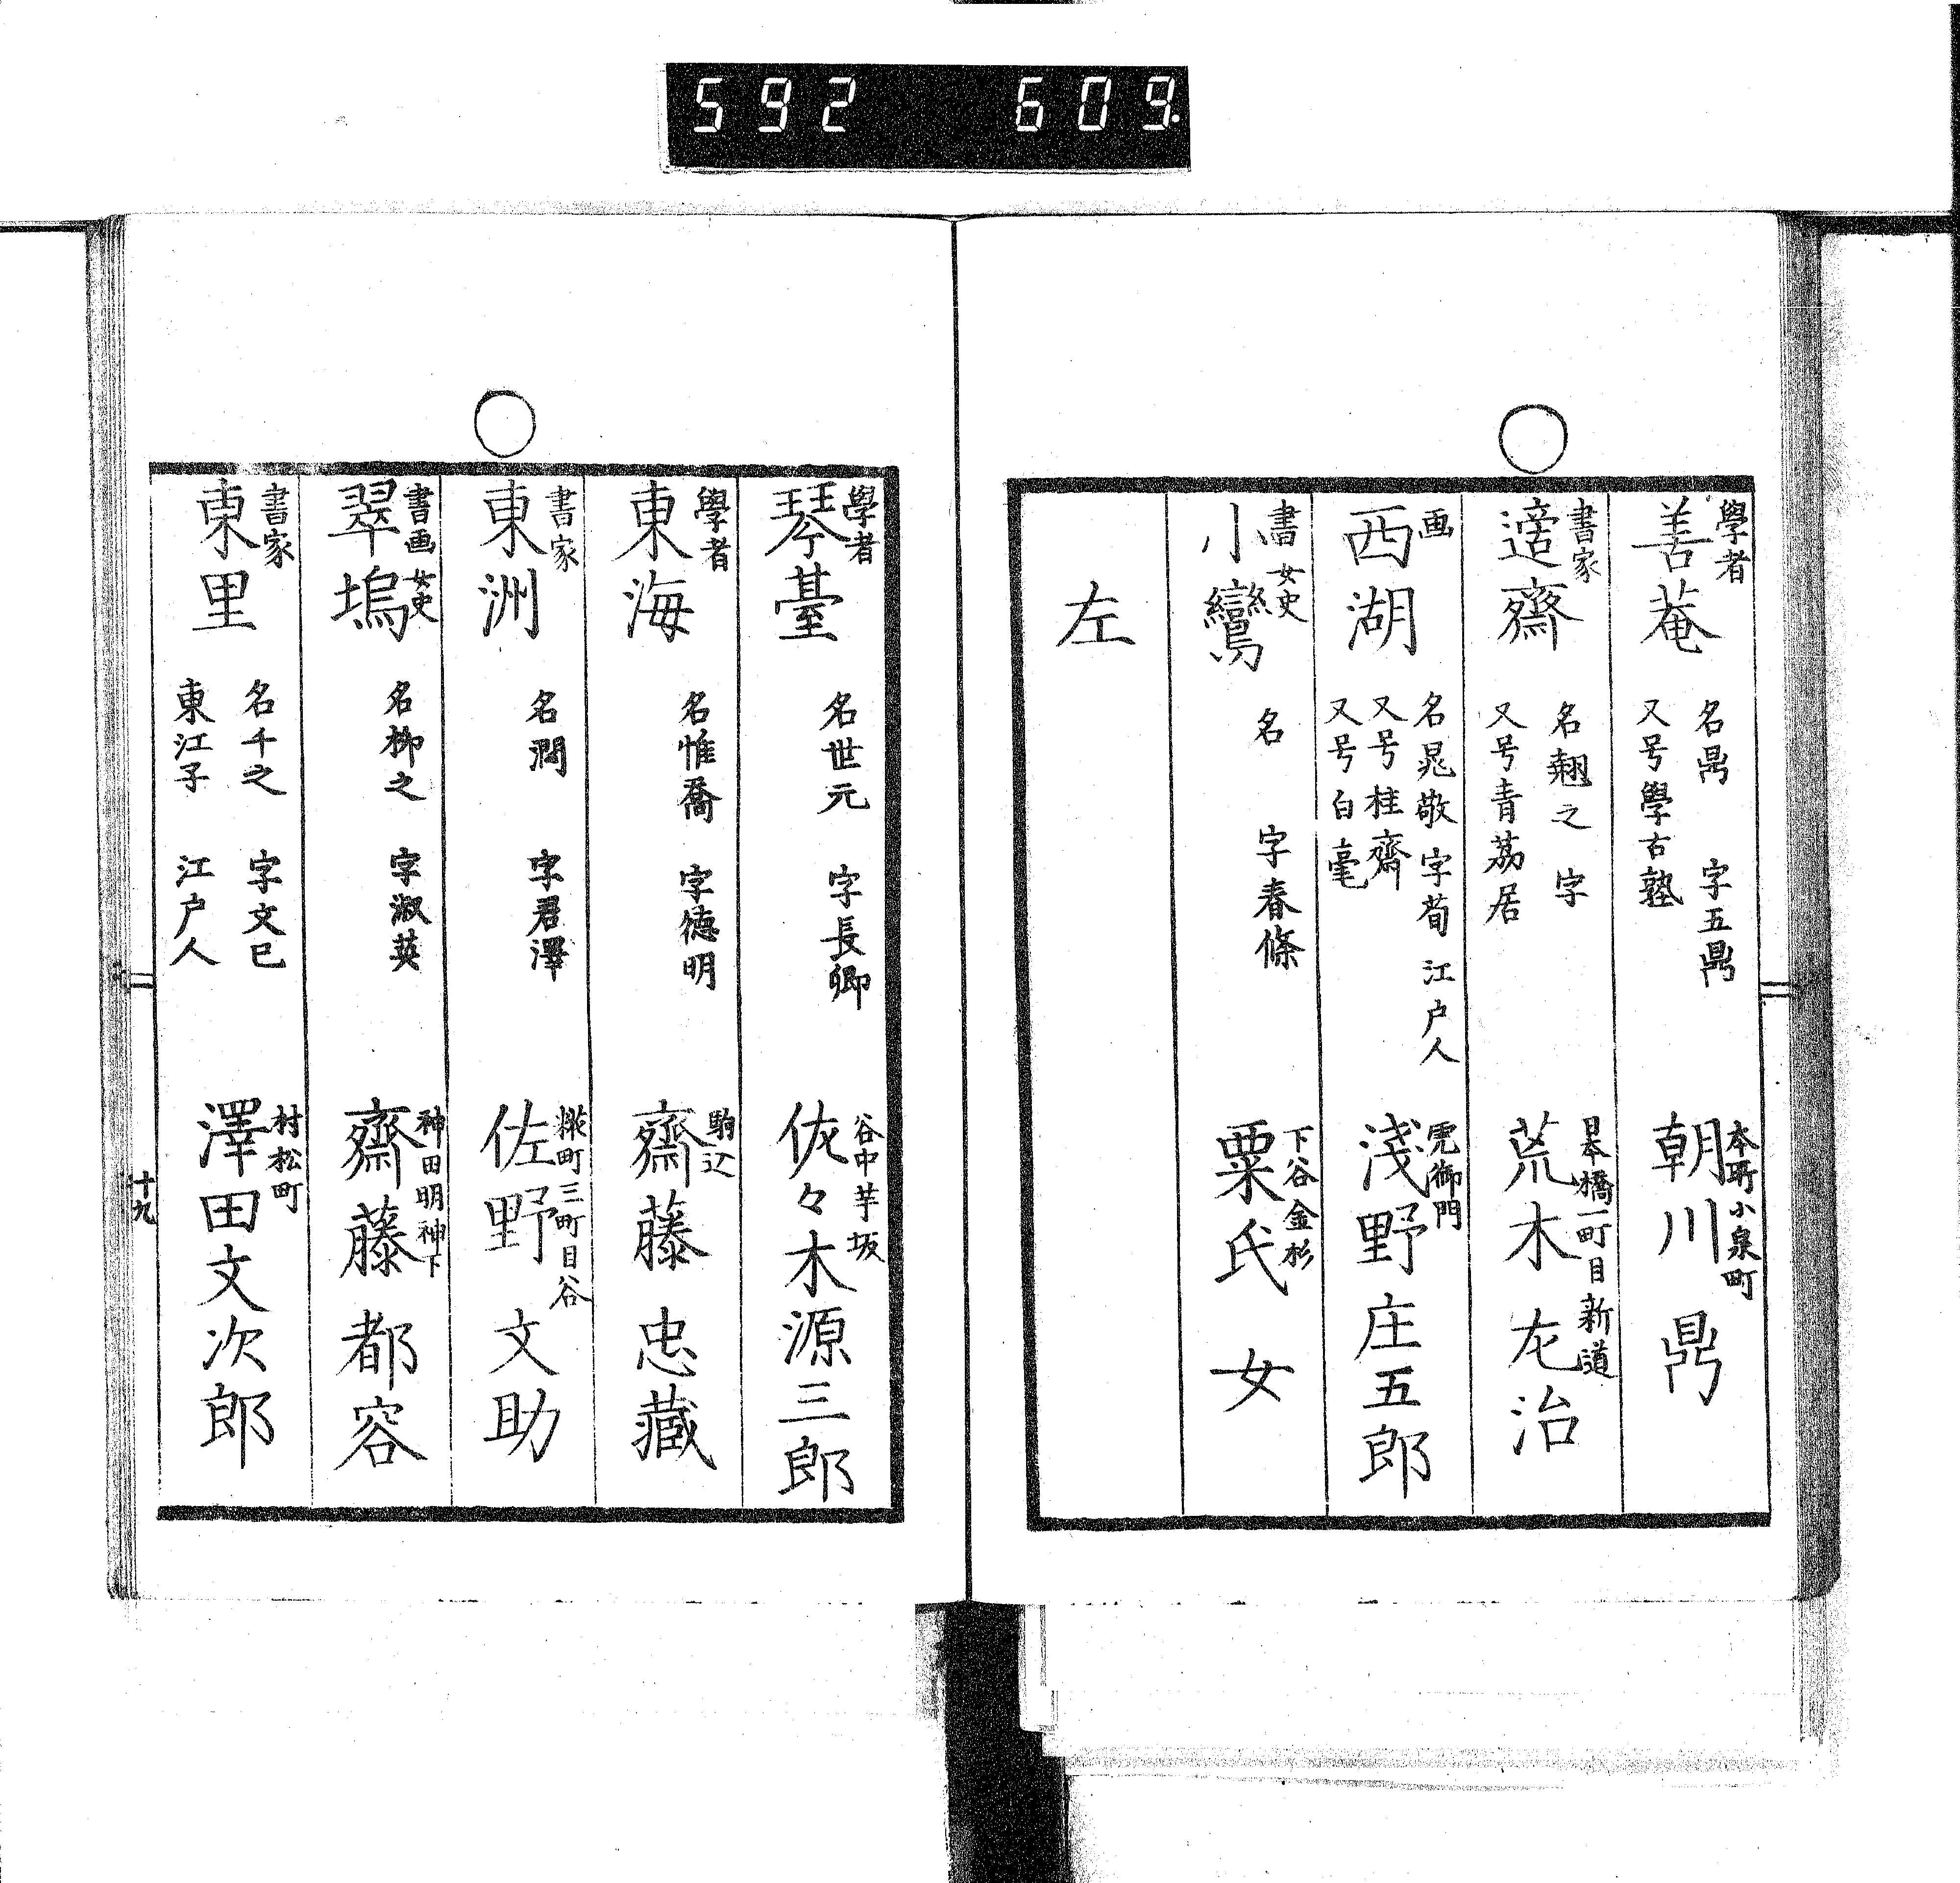 592 609.
學者
善菴 名鼎 字五鼎
又号學古塾
本所小泉町
朝川鼎
書家
適齋 名翹之 字
又号青荔居
日本橋一町目新道
荒木左治
画
西湖 名晁敬 字荀 江户人
又号桂齋
又号白毫
虎御門
淺野庄五郎
書 女史
小鸞 名 字春條
下谷金杉
粟氏女
左
學者
琴臺 名世元 字長卿
谷中芋坂
佐々木源三郎
學者
東海 名惟喬 字德明
駒込
齋藤忠藏
書家
東洲 名潤 字君澤
糀町三町目谷
佐野文助
書画 女史
翠塢 名柳之 字淑英
神田明神下
齋藤都容
書家
東里 名千之 字文已
東江子 江户人
村松町
澤田文次郎
十九